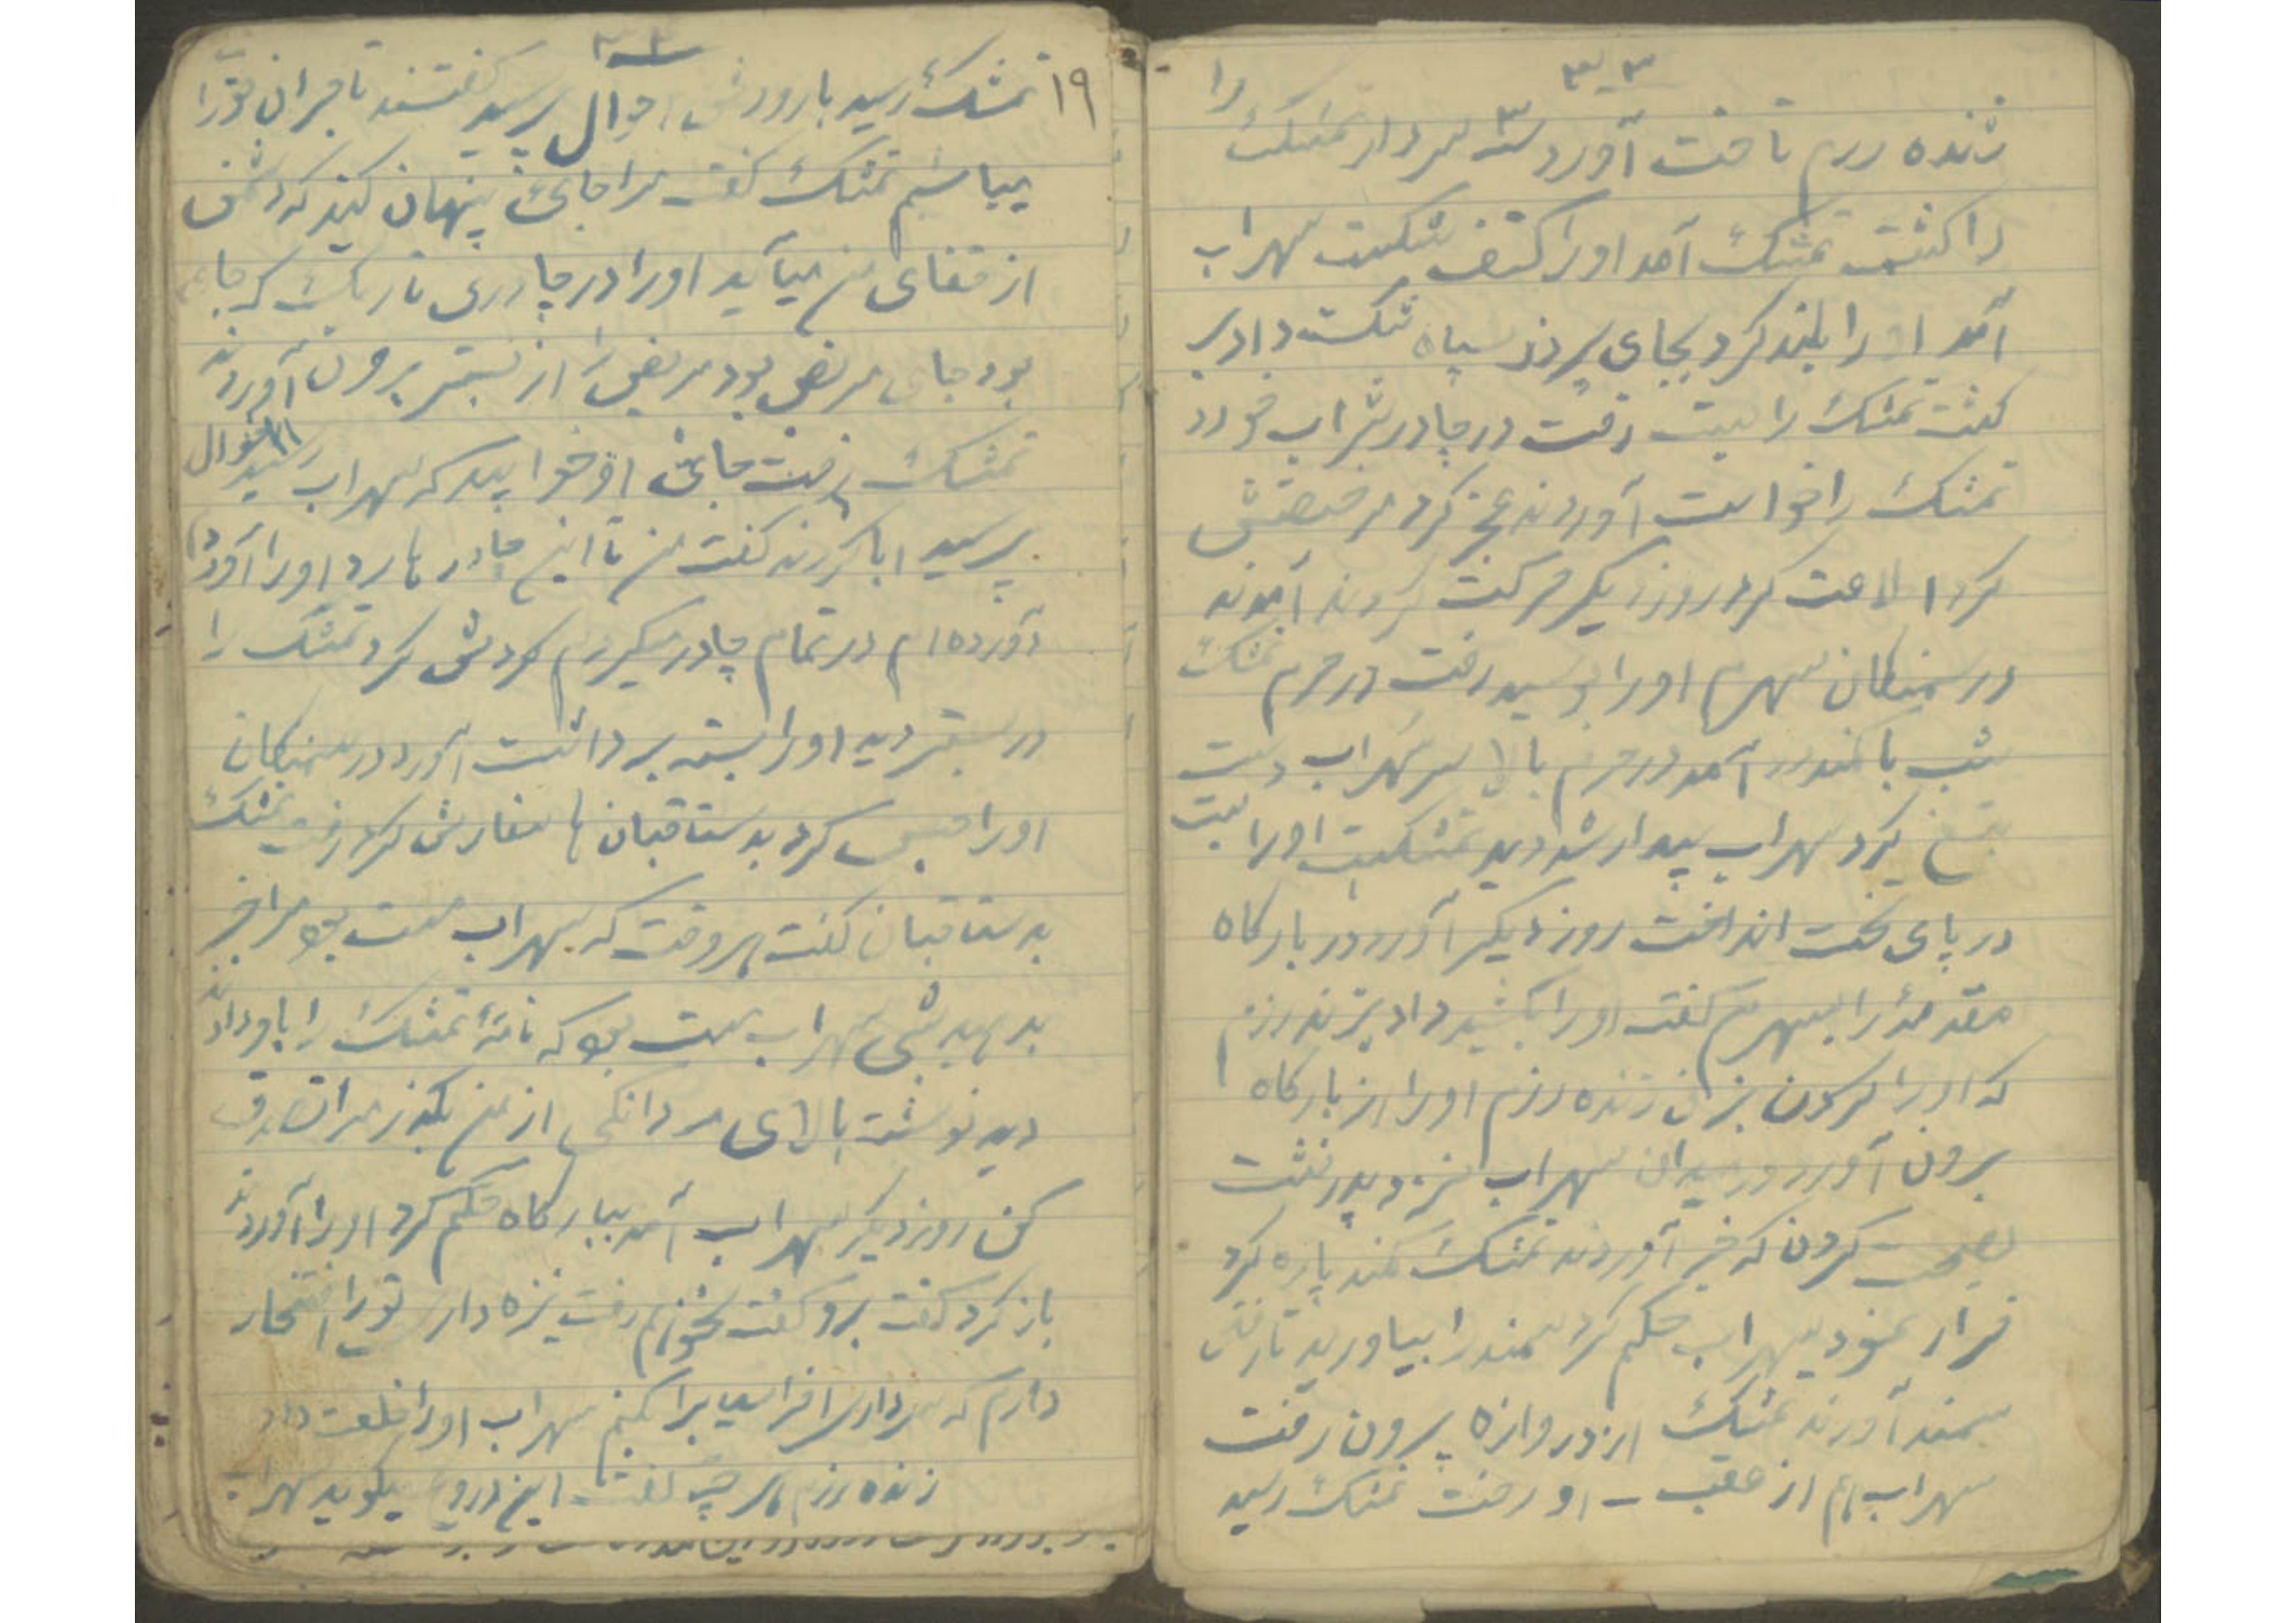 ۳۳
زنده رزم تاخت آورد سه سردار تمشک را
را کشت تمشک آمد او را کتف شکست سهراب
آمد او را بلند کرد بجای پر در سپاه شکست داد بر
گشت تمشک را بست رفت در چادر شراب خورد
تمشک را خواست آوردند عجز کرد مرخصش
کرد اطاعت کرد روز دیگر حرکت کردند آمدند
در سمنگان سهرم او را بوسید رفت در حرم تمشک
شب با کمند آمد در حرم بالا سر سهراب دست
بتیغ کرد سهراب بیدار شد دید تمشکست او را بست
در پای تخت انداخت روز دیگر آورد در بارگاه
مقدمهٔ را بسهرم گفت او را بکشید داد بزنده رزم
که او را گردن بزن زنده رزم او را از بارگاه
برون آورد در میدان سهراب نزد پدر نشست
صحبت کردن که خبر آوردند تمشک کمند پاره کرد
فرار نمود سهراب حکم کرد سمند را بیاورید تا رفتن
سمند آورند تمشک از دروازه برون رفت
سهراب هم از عقب او رفت تمشک رسید
۳۴
۱۹ تمشک رسید بارود احوال پرسید گفتند تاجران تورا
میباشیم تمشک گفت مرا جائی پنهان کنید که دشمن
از قفای من میآید او را در چادری تاریک که جای
بود جای مریض بود مریض را از بستر برون آوردند
تمشک رفت جای او خوابید که سهراب رسید احوال
پرسید ابا کردند گفت من تا این چادرها رد او را آورد
آورده‌ام در تمام چادر میگردم گردش کرد تمشک را
در بستر دید او را بسته برداشت آورد در سمنگان
او را حبس کرد بدستاقبان‌ها سفارش کرد رفت تمشک
بدستاقبان گفت هر وقت که سهراب مست بود مرا خبر
بدهید شبی سهراب مست بود که نامهٔ تمشک را باو دادند
دید نوشته بالای مردانگی از من بگذر مرا تصدق
کن روز دیگر سهراب آمد ببارگاه حکم کرد او را آوردند
باز کرد گفت برو گفت نمیروم نیزه دار تورا افتخار
دارم که سردار افراسیابرا کنم سهراب او را خلعت داد
زنده رزم هر چه گفت این دروغ میگوید سهراب